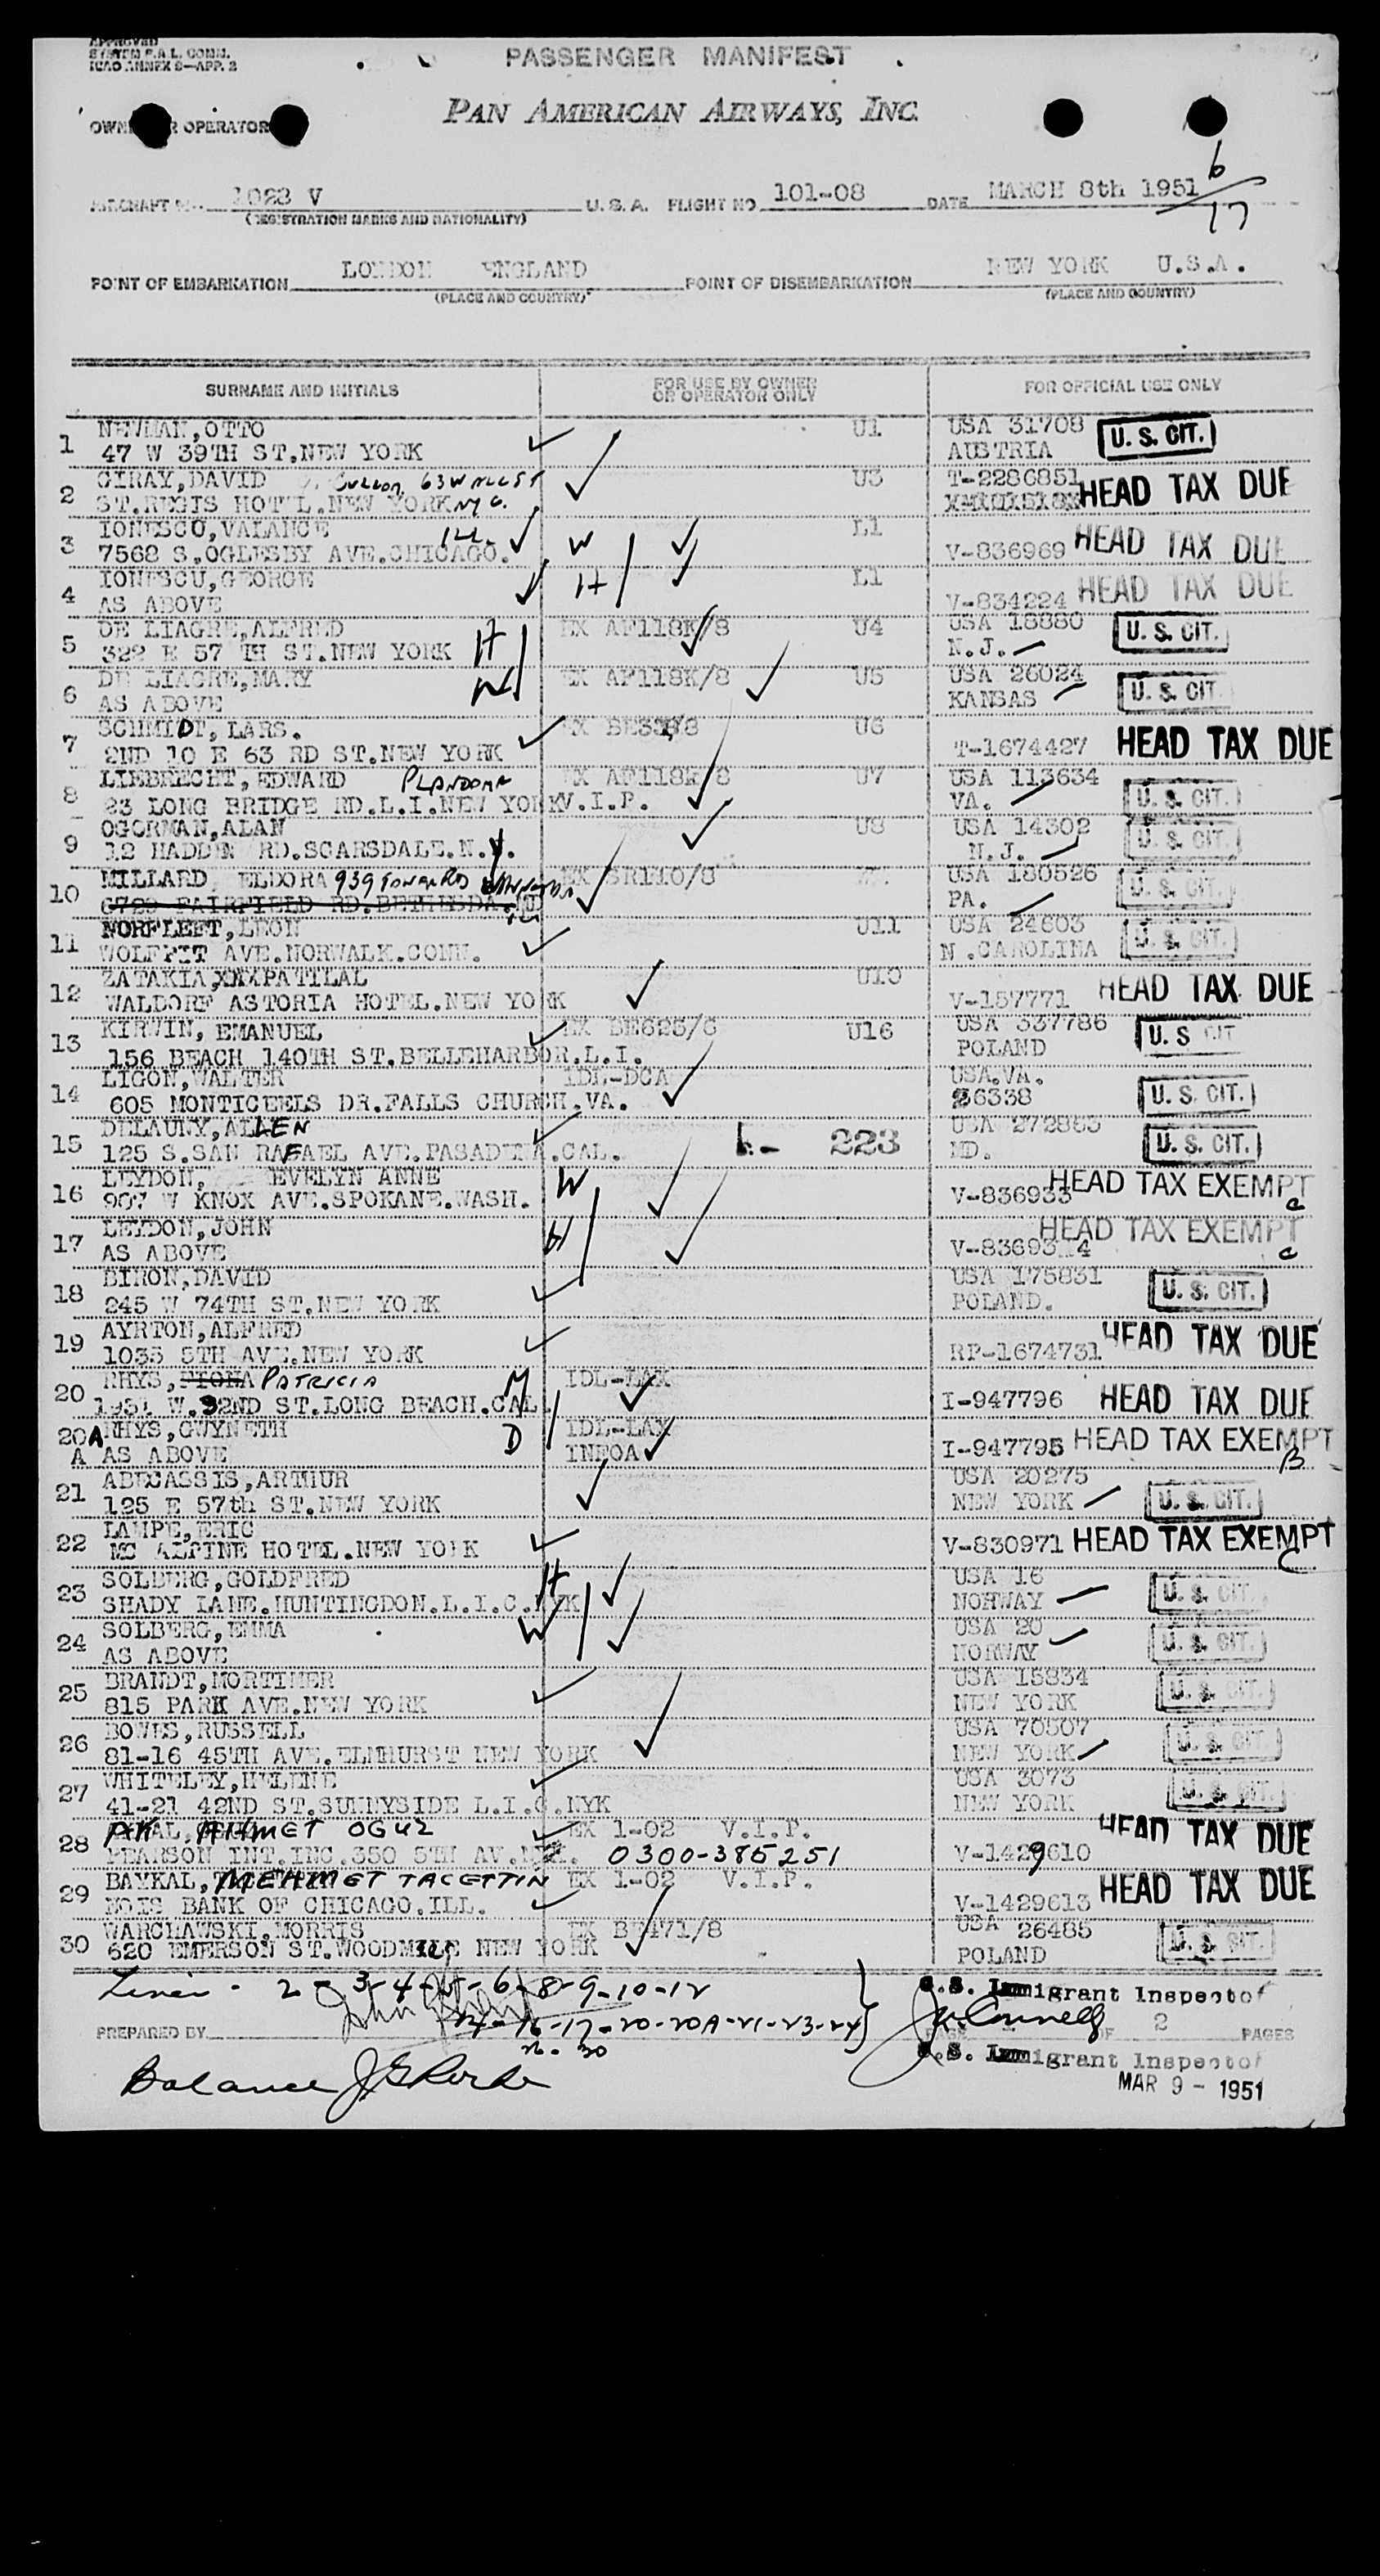 APPROVED
SYSTEM P.A.L. COMM.
ICAO ANNEX 9—APP. 2
PASSENGER MANIFEST
PAN AMERICAN AIRWAYS, INC.
OPERATOR
6/17
1023 V U. S. A. FLIGHT NO 101-08 DATE MARCH 8th 1951
(REGISTRATION MARKS AND NATIONALITY)
POINT OF EMBARKATION LONDON ENGLAND POINT OF DISEMBARKATION NEW YORK U.S.A.
(PLACE AND COUNTRY) (PLACE AND COUNTRY)
SURNAME AND INITIALS FOR USE BY OWNER OR OPERATOR ONLY FOR OFFICIAL USE ONLY
1 NEWMAN,OTTO U1 USA 31708 U. S. CIT.
47 W 39TH ST.NEW YORK AUSTRIA
2 GIRAY,DAVID 63 WALL ST U3 T-2286851 HEAD TAX DUE
ST.REGIS HOT'L.NEW YORK NYC.
3 IONESCO,VALANCE L1
7568 S.OGLESBY AVE.CHICAGO. ILL. W V-836969 HEAD TAX DUE
4 IONESCU,GEORGE L1
AS ABOVE H V-834224 HEAD TAX DUE
5 DE LIAGRE,ALFRED EX AF118K/8 U4 USA 18880 U. S. CIT.
322 E 57 TH ST.NEW YORK H N.J.
6 DE LIAGRE,MARY EX AF118K/8 U5 USA 26024 U. S. CIT.
AS ABOVE W KANSAS
7 SCHMIDT, LARS. U6
2ND 10 E 63 RD ST.NEW YORK T-1674427 HEAD TAX DUE
8 LIEBRECHT,EDWARD PLANDOME EX AF118K/8 U7 USA 113634 U. S. CIT.
23 LONG BRIDGE RD.L.I.NEW YORK V.I.P. VA.
9 OGORMAN,ALAN U8 USA 14302 U. S. CIT.
12 HADDEN RD.SCARSDALE.N.Y. N.J.
10 MILLARD ELDORA 939 EX SR110/8 USA 180526 U. S. CIT.
6729 FAIRFIELD RD.BETHESDA. MD PA.
11 NORFLEET,LEON U11 USA 24603 U. S. CIT.
WOLFPIT AVE.NORWALK.CONN. N.CAROLINA
12 ZATAKIA,XXXPATILAL U10
WALDORF ASTORIA HOTEL.NEW YORK V-157771 HEAD TAX DUE
13 KIRWIN, EMANUEL EX BE625/6 U16 USA 337786 U. S CIT
156 BEACH 140TH ST.BELLEHARBOR.L.I. POLAND
14 LIGON,WALTER IDL-DCA USA.VA.
605 MONTICEELS DR.FALLS CHURCH.VA. 36338 U. S. CIT.
15 DELAUNY,ALLEN USA 272863 U. S. CIT.
125 S.SAN RAFAEL AVE.PASADENA.CAL. 223 MD.
16 LEYDON, EVELYN ANNE W
907 W KNOX AVE.SPOKANE.WASH. V-836933 HEAD TAX EXEMPT c
17 LEYDON,JOHN
AS ABOVE H V-836934 HEAD TAX EXEMPT c
18 BIRON,DAVID USA 175831 U. S. CIT.
245 W 74TH ST.NEW YORK POLAND.
19 AYRTON,ALFRED
1035 5TH AVE.NEW YORK RP-1674731 HEAD TAX DUE
20 RHYS,FIONA PATRICIA M IDL-LAX
1951 W.32ND ST.LONG BEACH.CAL. I-947796 HEAD TAX DUE
20A RHYS,GWYNETH D IDL-LAX
A AS ABOVE INFOA I-947795 HEAD TAX EXEMPT B
21 ABECASSIS,ARTHUR USA 20275
125 E 57th ST.NEW YORK NEW YORK U. S. CIT.
22 LAMPE,ERIC
MC ALPINE HOTEL.NEW YORK V-830971 HEAD TAX EXEMPT C
23 SOLBERG,GOLDFRED H USA 16
SHADY LANE.HUNTINGDON.L.I.C.NYK NORWAY U. S. CIT.
24 SOLBERG,EMMA W USA 20
AS ABOVE NORWAY U. S. CIT.
25 BRANDT,MORTIMER USA 15834
815 PARK AVE.NEW YORK NEW YORK U. S. CIT.
26 BOWES,RUSSELL USA 70507
81-16 45TH AVE.ELMHURST NEW YORK NEW YORK U. S. CIT.
27 WHITELEY,HELENE USA 3073
41-21 42ND ST.SUNNYSIDE L.I.C.NYK NEW YORK U. S. CIT.
28 AHMET OGUZ EX 1-02 V.I.P. HEAD TAX DUE
PEARSON INT.INC.350 5TH AV.NYK. 0300-385251 V-1429610
29 BAYKAL, MEHMET TACETTIN EX 1-02 V.I.P. HEAD TAX DUE
BANK OF CHICAGO.ILL. V-1429613
30 WARCHAWSKI,MORRIS EX BE471/8 USA 26485
620 EMERSON ST.WOODMERE NEW YORK POLAND U. S. CIT.
2-3-4-5-6-8-9-10-12
14-16-17-20-20A-21-23-24
26-30
U.S. Immigrant Inspector
PREPARED BY PAGE OF 2 PAGES
U.S. Immigrant Inspector
Balance
MAR 9 - 1951